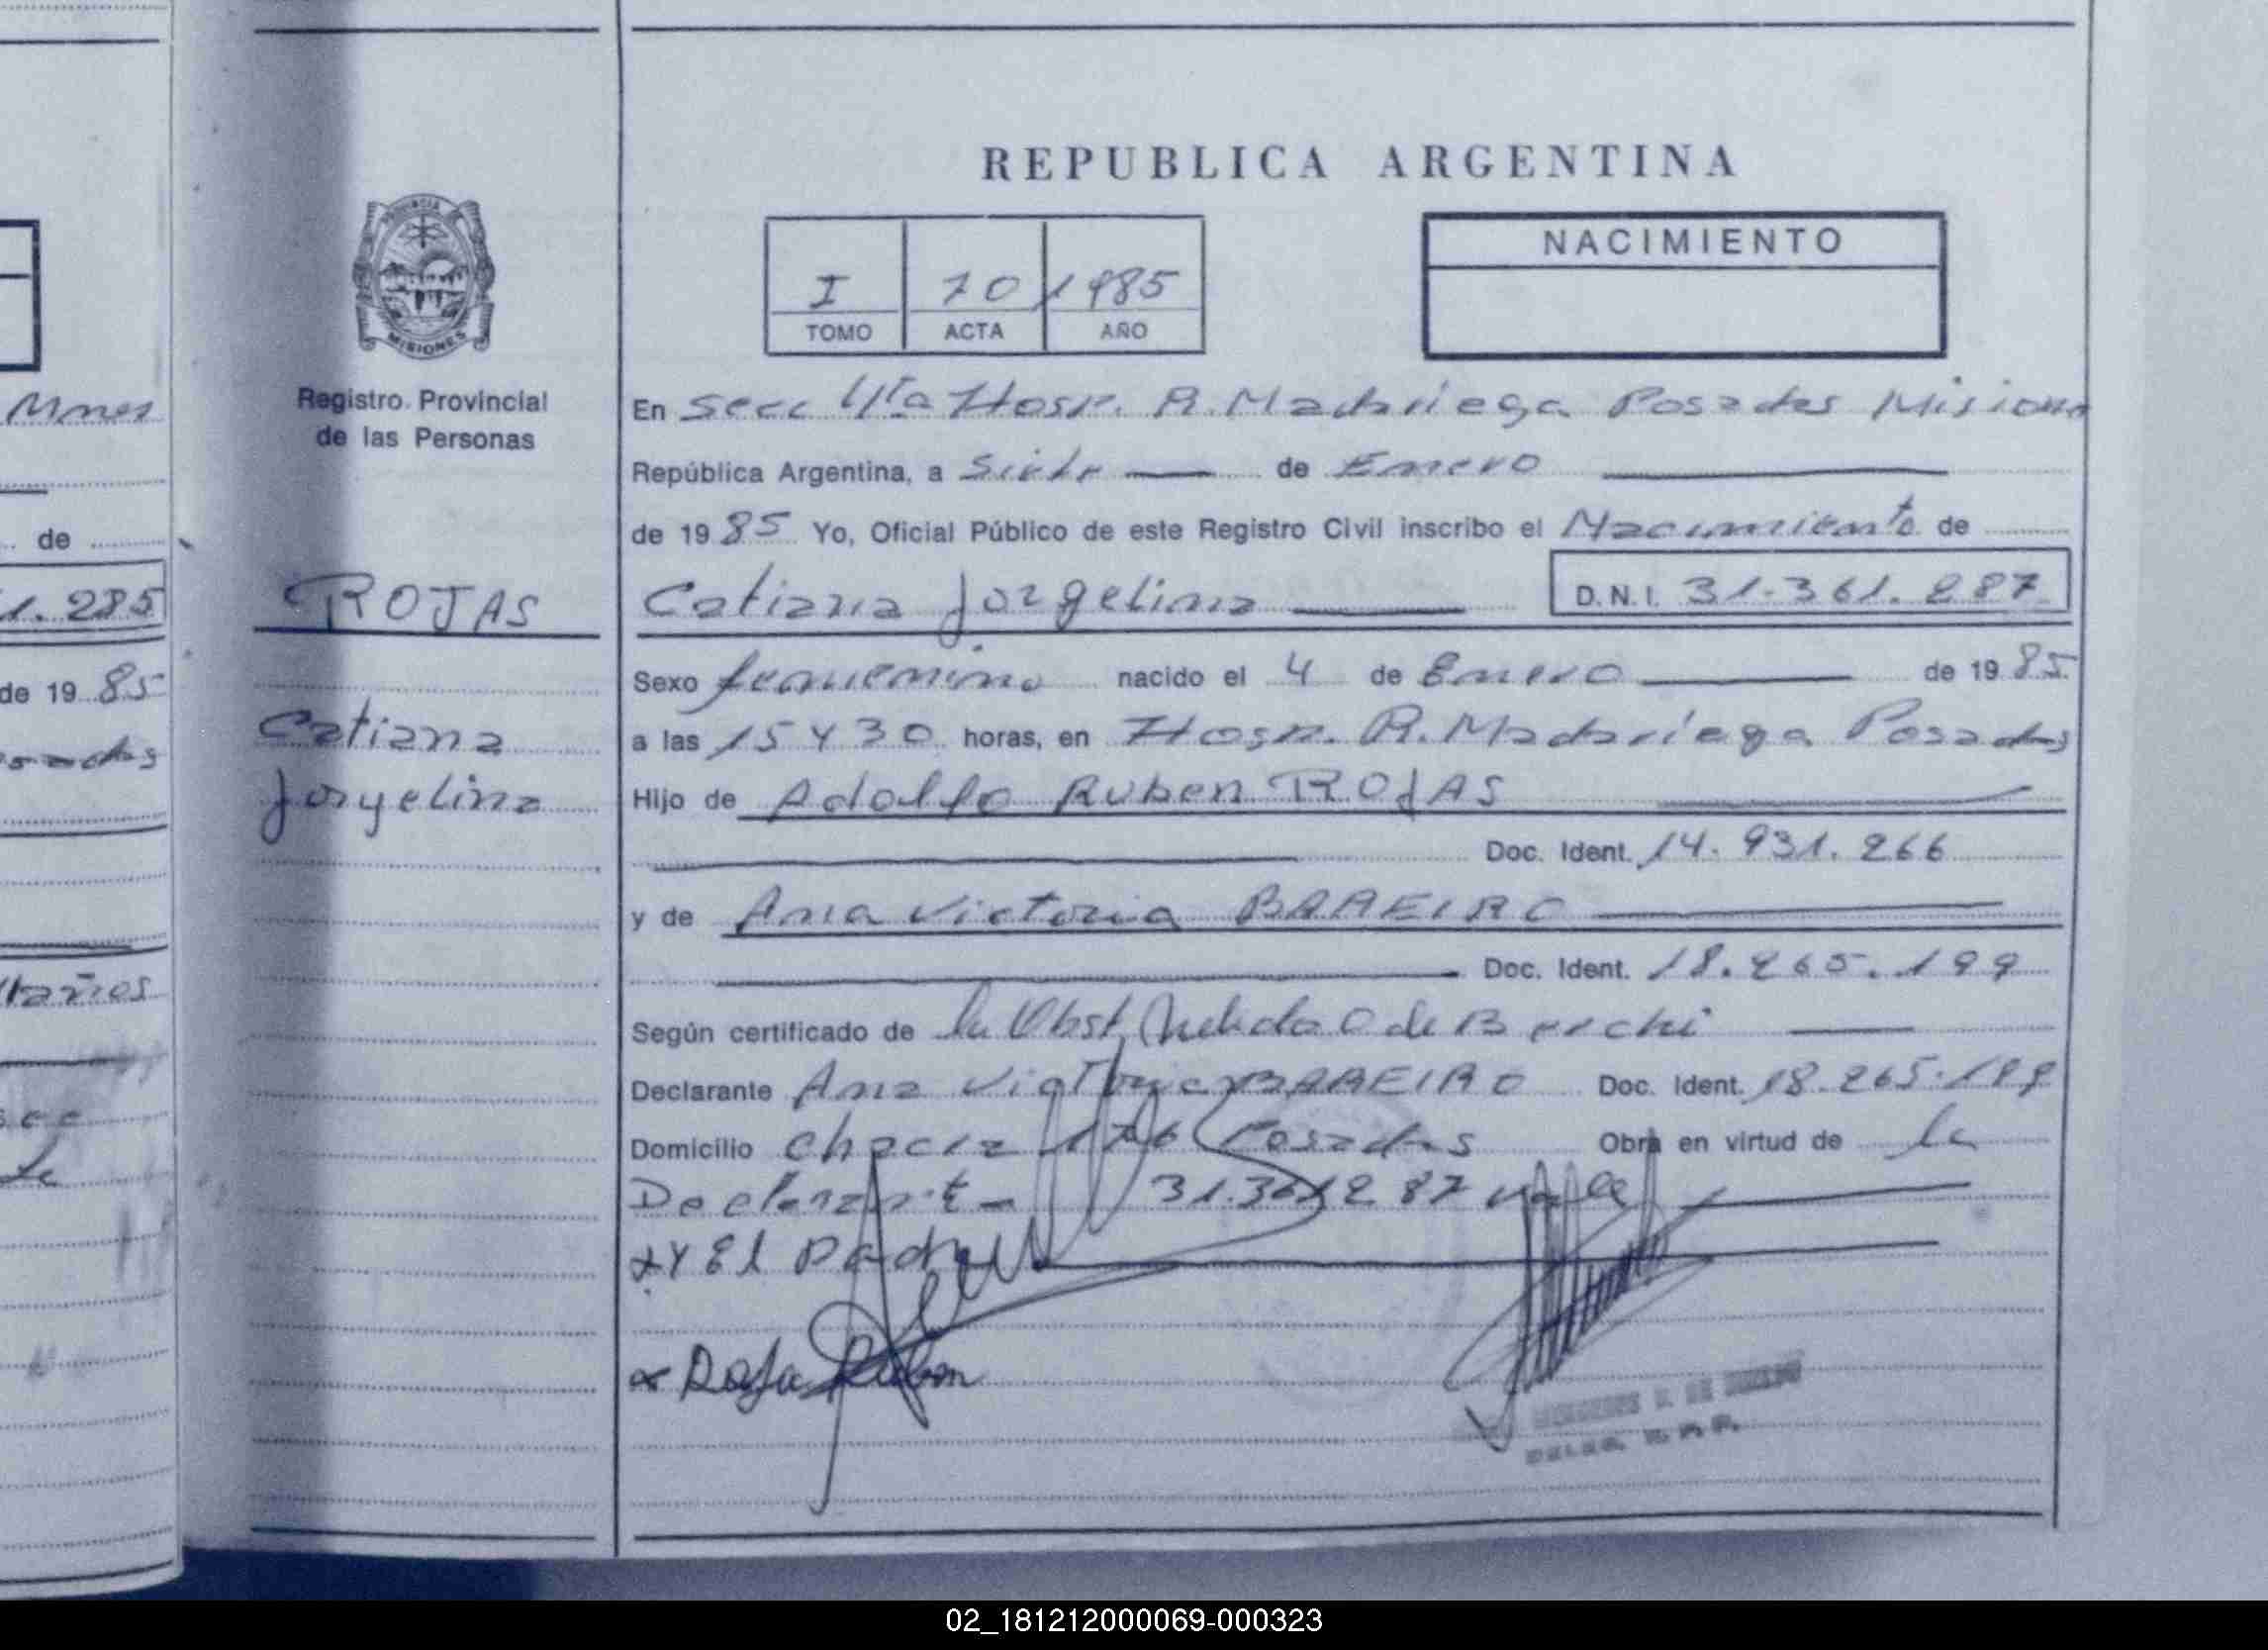 REPUBLICA ARGENTINA
PROVINCIA
MISIONES
Registro Provincial
de las Personas
I 70 1985
TOMO ACTA AÑO
NACIMIENTO
En Secc 4ta Hosp. R. Madariega Posadas Misiones
República Argentina, a Siete de Enero
de 1985 Yo, Oficial Público de este Registro Civil inscribo el Nacimiento de
ROJAS
Catiana Jorgelina D.N.I. 31.361.287
Sexo femenino nacido el 4 de Enero de 1985
Catiana
Jorgelina
a las 15 Y 30 horas, en Hosp. R. Madariega Posadas
Hijo de Adolfo Ruben ROJAS
Doc. Ident. 14.931.266
y de Ana Victoria BAREIRO
Doc. Ident. 18.265.199
Según certificado de la Obst, Nelida O de
Declarante Ana Victoria BAREIRO Doc. Ident. 18.265.199
Domicilio Posadas Obra en virtud de la
Declarante 31.361287 vale
x Y El Padre
Ruben
Mnes
de
1.285
de 19 85
02_181212000069-000323